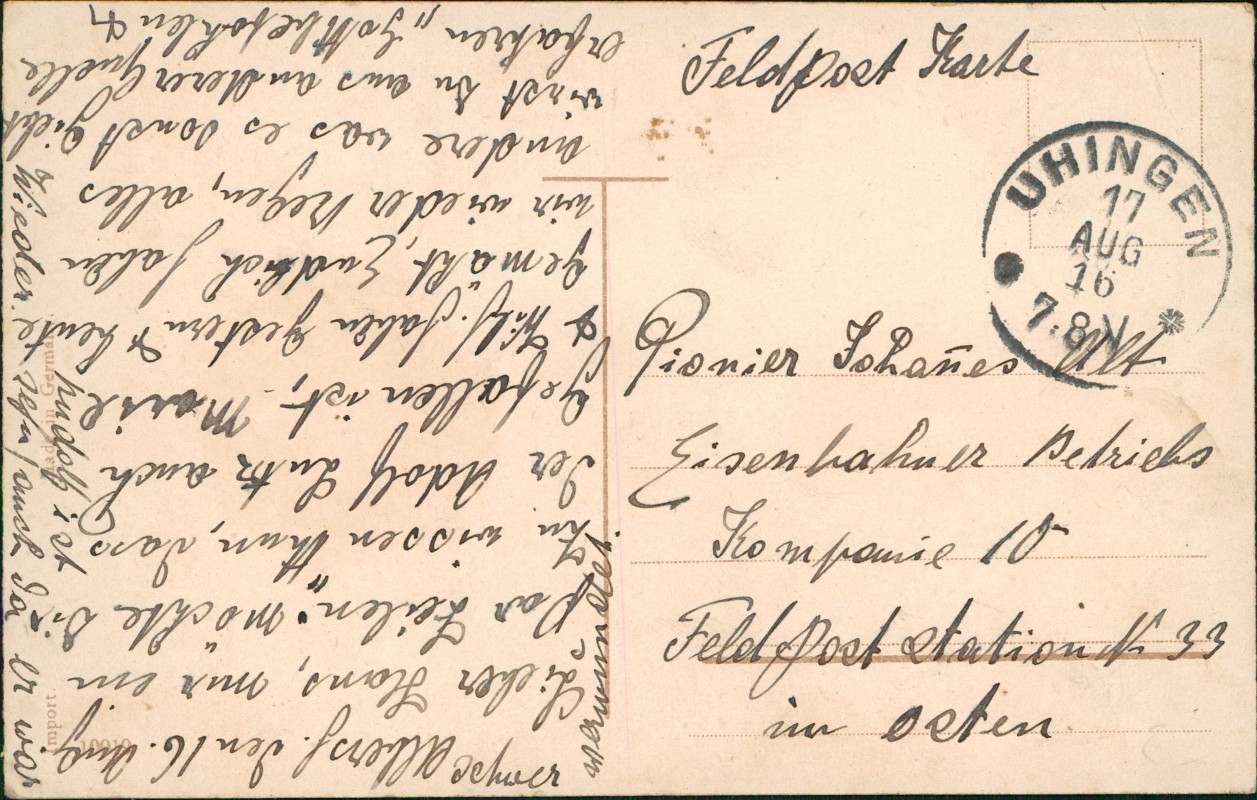 Feldpost Karte
UHINGEN
17
AUG
16
7-8V
Pionier Johannes Alt
Eisenbahner Betriebs
Kompanie 10
Feldpost station N 33
im osten
Albersh. den 16. Aug.
Lieber Hans, nur ein
par Zeilen" möchte Dir
zu wissen thun, dass
der Adolf Lutz auch
gefallen ist, Marie
& Wilh. haben gestern & heute
gemäht, Endlich haben
wir wieder Regen, alles
andere was es sonst gibt
wirst Du aus anderer Quelle
erfahren, „Gott befohlen &
Wieder sehn
Rudolf ist
auch da er war
schwer
verwundet
Import.
Made in Germany